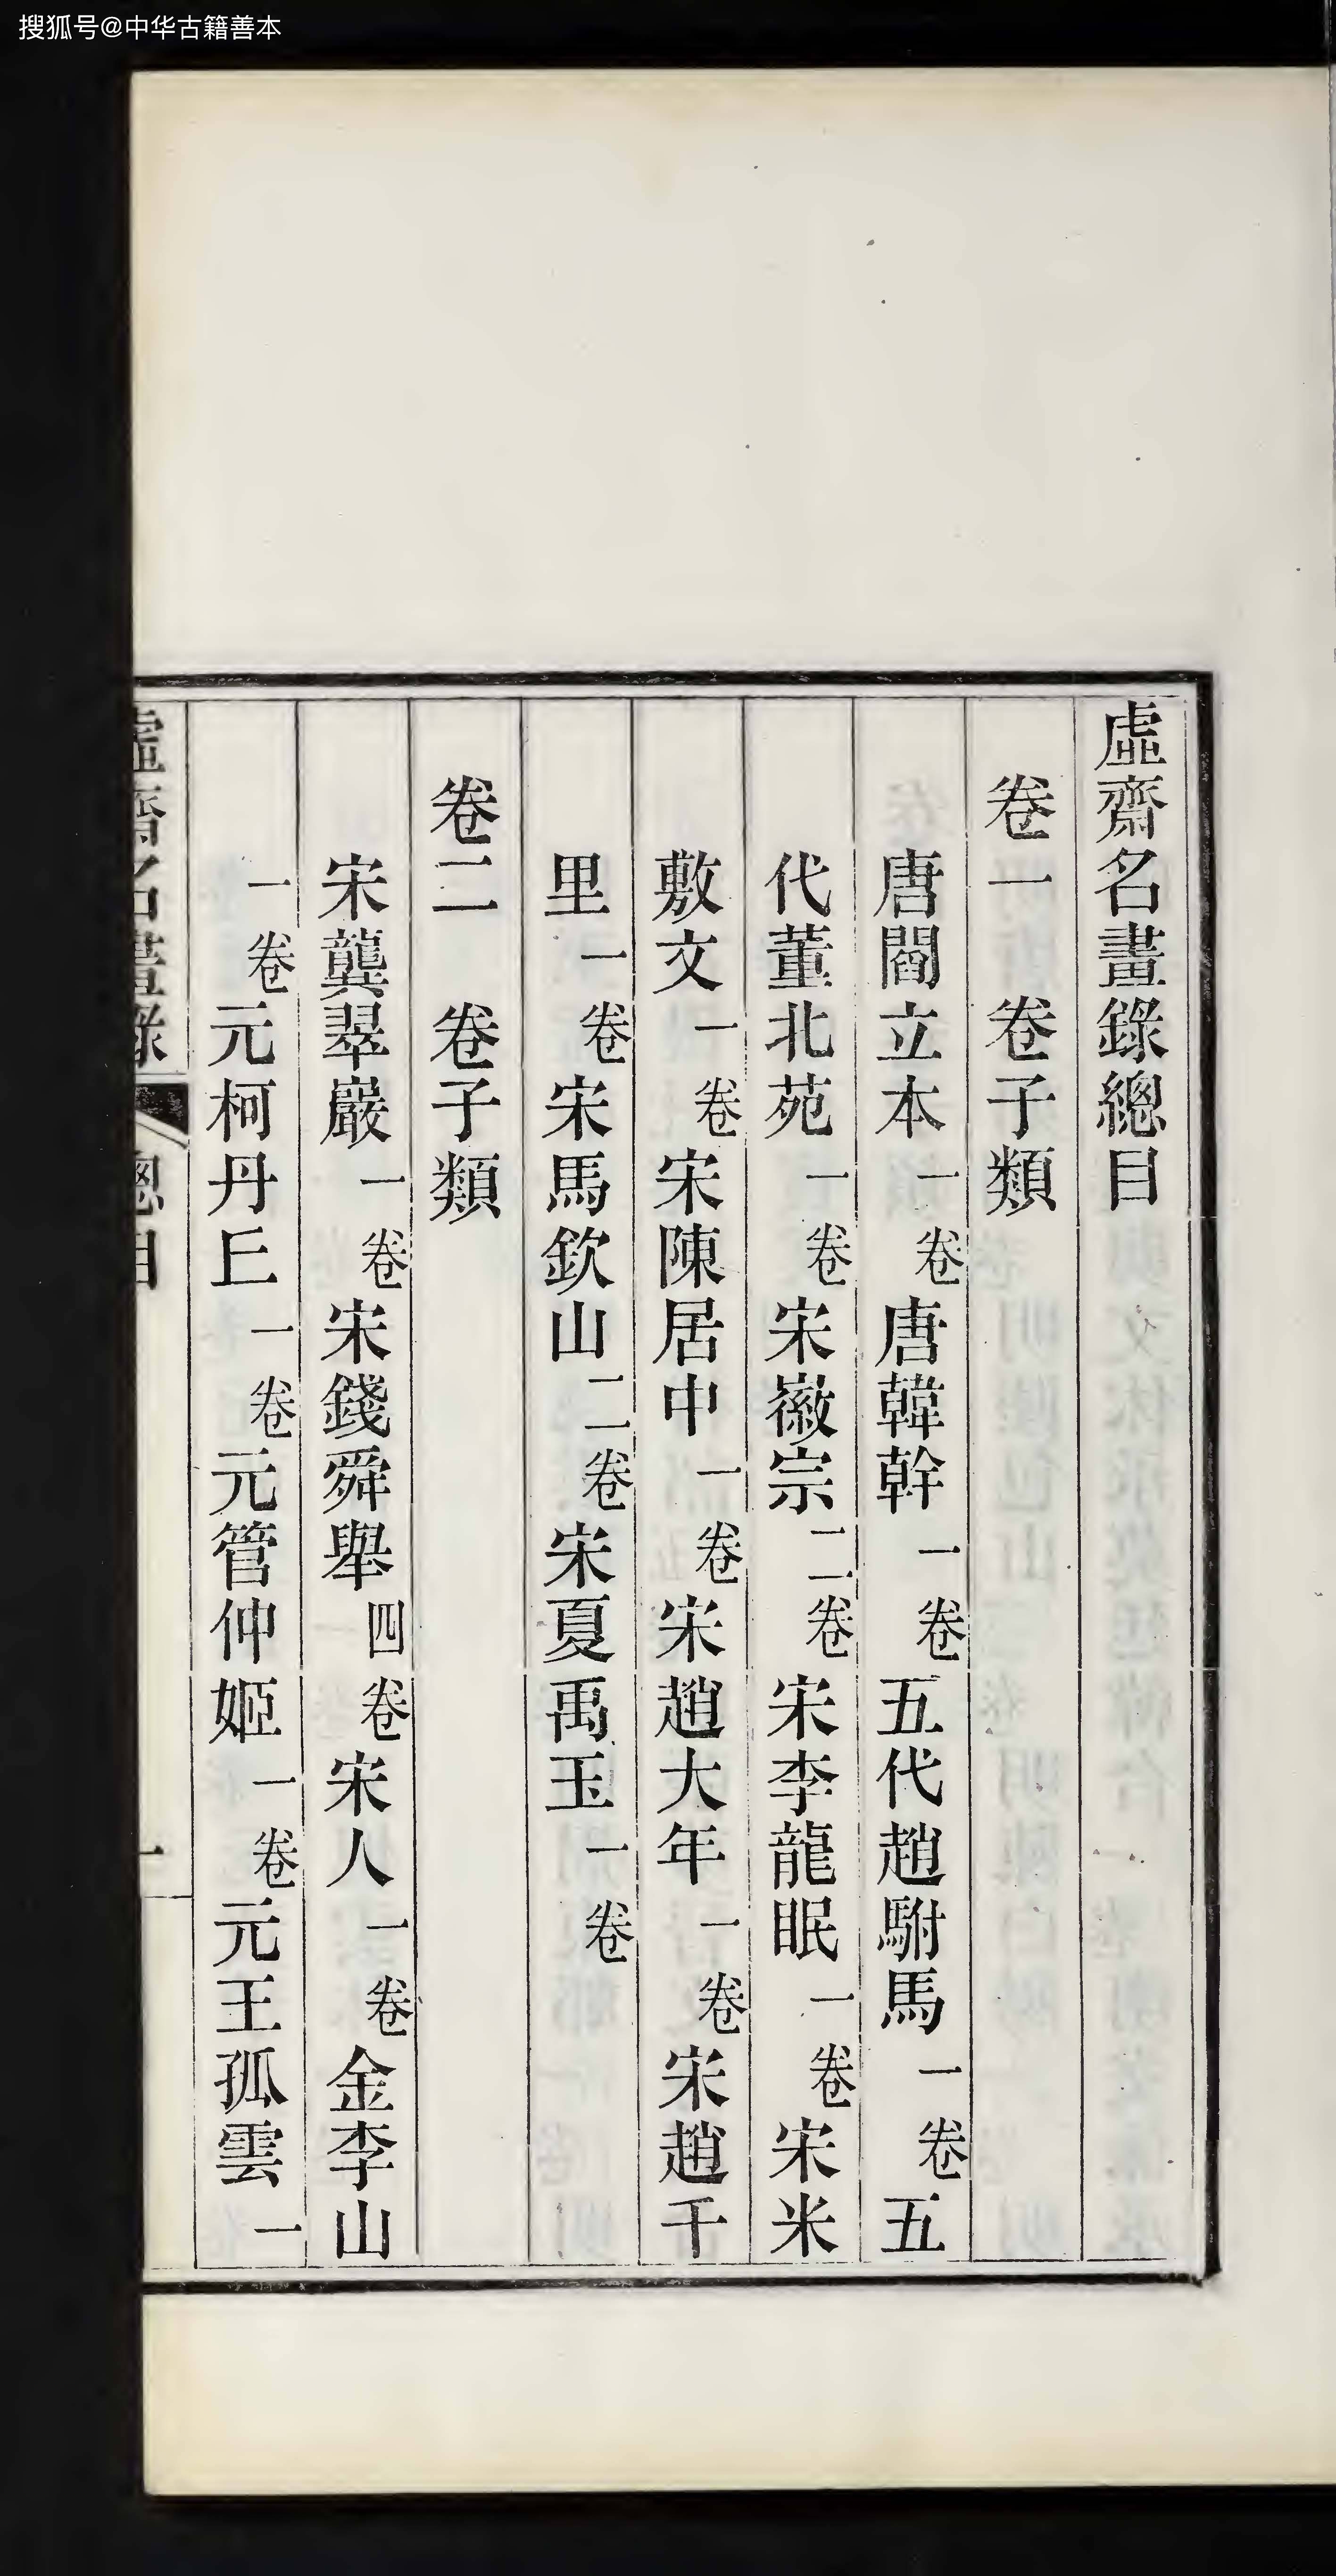 搜狐号@中华古籍善本
虛齋名畫錄總目
卷一 卷子類
唐閻立本一卷 唐韓幹一卷 五代趙駙馬一卷 五
代董北苑一卷 宋徽宗二卷 宋李龍眠一卷 宋米
敷文一卷 宋陳居中一卷 宋趙大年一卷 宋趙千
里一卷 宋馬欽山二卷 宋夏禹玉一卷
卷二 卷子類
宋龔翠巖一卷 宋錢舜舉四卷 宋人一卷 金李山
一卷 元柯丹丘一卷 元管仲姬一卷 元王孤雲一
虛齋名畫錄 總目 一